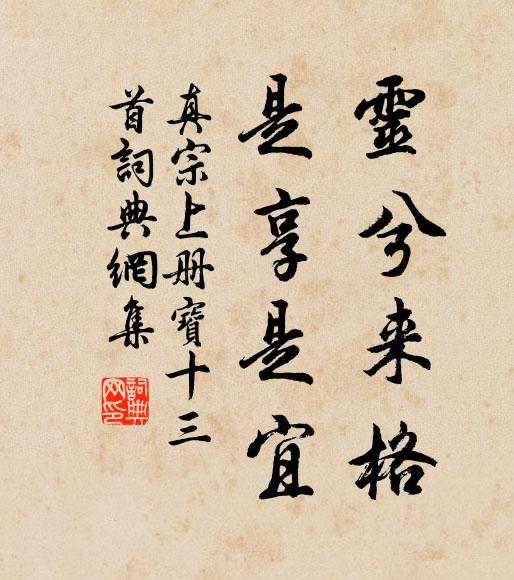 靈兮来格
是享是宜
真宗上册寶十三
首詞典網集
詞典网印